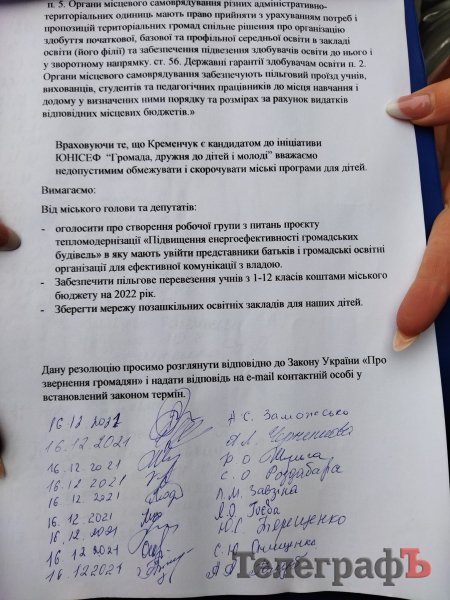 п. 5. Органи місцевого самоврядування різних адміністративно-
територіальних одиниць мають право прийняти з урахуванням потреб і
пропозицій територіальних громад спільне рішення про організацію
здобуття початкової, базової та профільної середньої освіти в закладі
освіти (його філії) та забезпечення підвезення здобувачів освіти до нього і
у зворотному напрямку. ст. 56. Державні гарантії здобувачам освіти п. 2.
Органи місцевого самоврядування забезпечують пільговий проїзд учнів,
вихованців, студентів та педагогічних працівників до місця навчання і
додому у визначених ними порядку та розмірах за рахунок видатків
відповідних місцевих бюджетів.»
Враховуючи те, що Кременчук є кандидатом до ініціативи
ЮНІСЕФ "Громада, дружня до дітей і молоді" вважаємо
недопустимим обмежувати і скорочувати міські програми для дітей.
Вимагаємо:
Від міського голови та депутатів:
- оголосити про створення робочої групи з питань проєкту
тепломодернізації «Підвищення енергоефективності громадських
будівель» в яку мають увійти представники батьків і громадські освітні
організації для ефективної комунікації з владою.
- Забезпечити пільгове перевезення учнів з 1-12 класів коштами міського
бюджету на 2022 рік.
- Зберегти мережу позашкільних освітніх закладів для наших дітей.
Дану резолюцію просимо розглянути відповідно до Закону України «Про
звернення громадян» і надати відповідь на e-mail контактній особі у
встановлений законом термін.
16.12 2021 А.С.
16.12.2021 А.Л.
16.12.2021
16.12.2021 С.О. Роздабара
16.12.2021 Л.М. Завзіна
16.12.2021
16.12.2021 Ю.С. Терещенко
16.12.2021 С.Ю.
16.12.2021
ТелеграфЪ